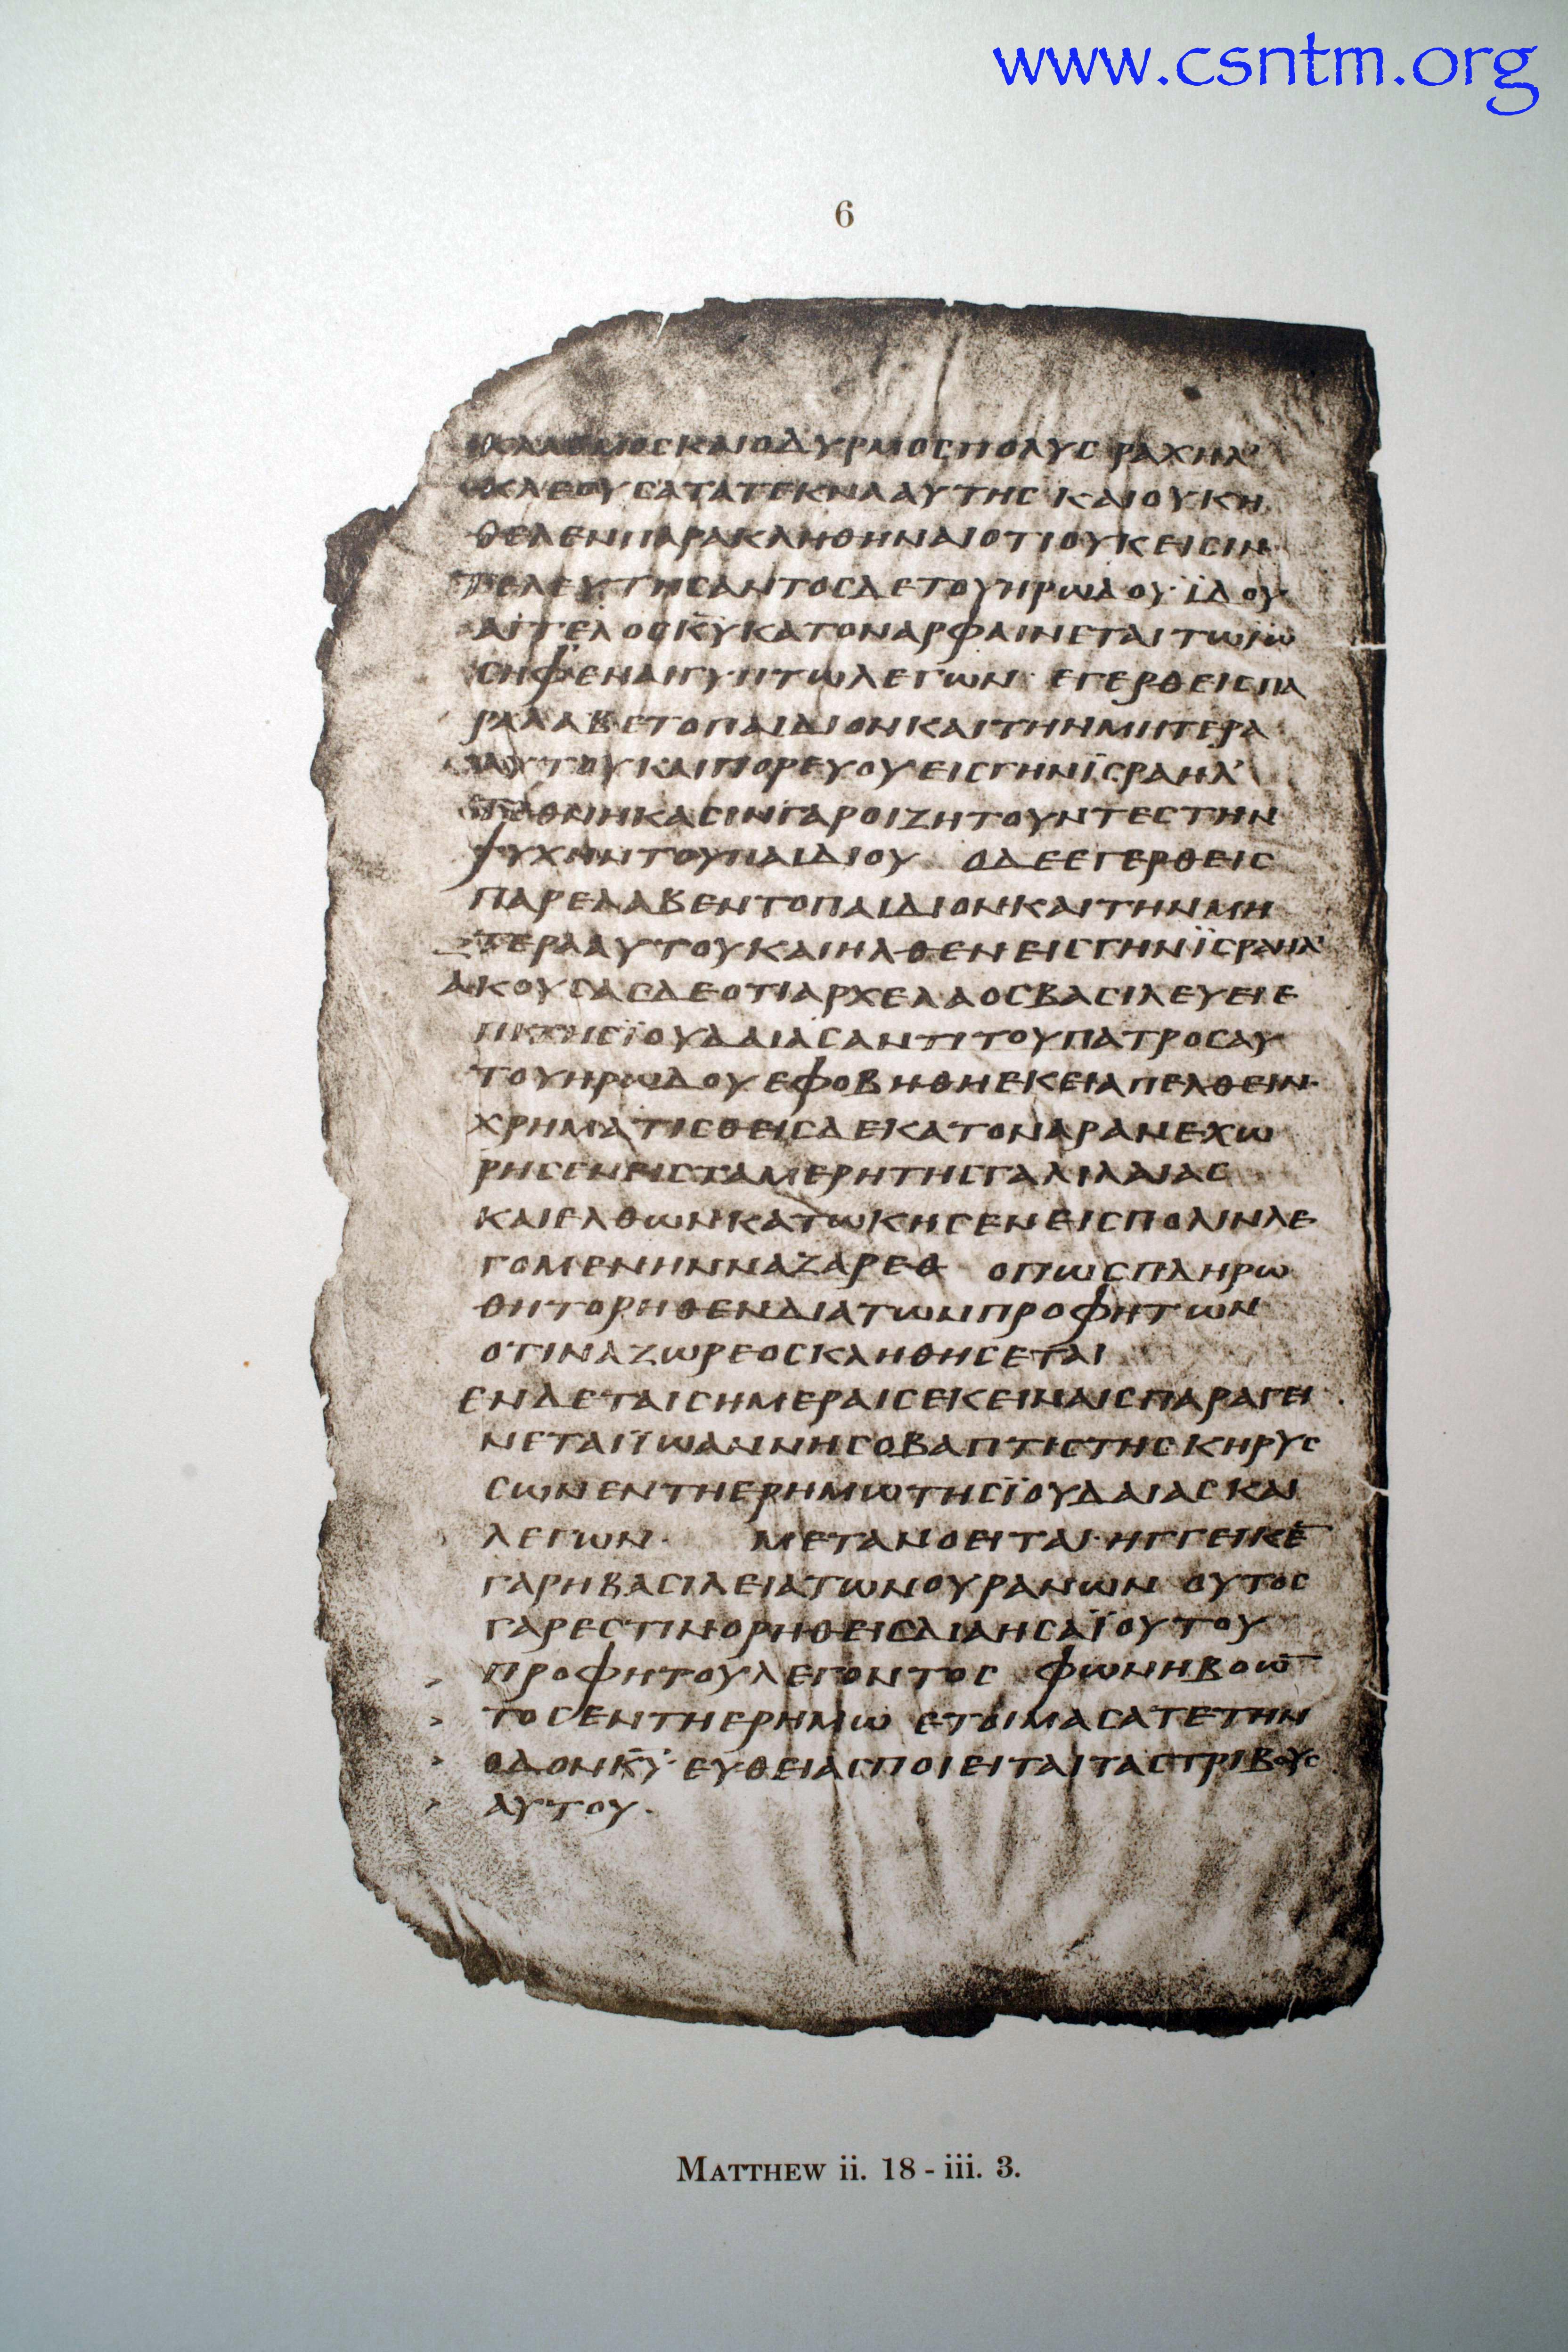 www.csntm.org
6
ΚΛΑΥΘΜΟΣ ΚΑΙΟΔΥΡΜΟΣΠΟΛΥΣ ΡΑΧΗΛ
ΚΛΕΟΥϹΑΤΑΤΕΚΝΑΑΥΤΗϹ ΚΑΙΟΥΚΗ
ΘΕΛΕΝΠΑΡΑΚΛΗΘΗΝΑΙΟΤΙΟΥΚΕΙϹΙΝ·
ΤΕΛΕΥΤΗϹΑΝΤΟϹΔΕΤΟΥΗΡΩΔΟΥ·ΪΔΟΥ
ΑΓΓΕΛΟϹΚ̅Υ̅ΚΑΤΟΝΑΡΦΑΙΝΕΤΑΙΤΩΪΩ
ϹΗΦʼΕΝΑΙΓΥΠΤΩΛΕΓΩΝ· ΕΓΕΡΘΕΙϹΠΑ
ΡΑΛΑΒΕΤΟΠΑΙΔΙΟΝΚΑΙΤΗΝΜΗΤΕΡΑ
ΑΥΤΟΥΚΑΙΠΟΡΕΥΟΥΕΙϹΓΗΝΪϹΡΑΗΛʼ
ΤΕΘΝΗΚΑϹΙΝΓΑΡΟΙΖΗΤΟΥΝΤΕϹΤΗΝ
ΨΥΧΗΝΤΟΥΠΑΙΔΙΟΥ ΟΔΕΕΓΕΡΘΕΙϹ
ΠΑΡΕΛΑΒΕΝΤΟΠΑΙΔΙΟΝΚΑΙΤΗΝΜΗ
ΤΕΡΑΑΥΤΟΥΚΑΙΗΛΘΕΝΕΙϹΓΗΝΪϹΡΑΗΛ
ΑΚΟΥϹΑϹΔΕΟΤΙΑΡΧΕΛΑΟϹΒΑϹΙΛΕΥΕΙΕ
ΠΙΤΗϹΪΟΥΔΑΙΑϹΑΝΤΙΤΟΥΠΑΤΡΟϹΑΥ
ΤΟΥΗΡΩΔΟΥΕΦΟΒΗΘΗΕΚΕΙΑΠΕΛΘΕΙΝ·
ΧΡΗΜΑΤΙϹΘΕΙϹΔΕΚΑΤΟΝΑΡΑΝΕΧΩ
ΡΗϹΕΝΕΙϹΤΑΜΕΡΗΤΗϹΓΑΛΙΛΑΙΑϹ
ΚΑΙΕΛΘΩΝΚΑΤΩΚΗϹΕΝΕΙϹΠΟΛΙΝΛΕ
ΓΟΜΕΝΗΝΝΑΖΑΡΕΘ ΟΠΩϹΠΛΗΡΩ
ΘΗΤΟΡΗΘΕΝΔΙΑΤΩΝΠΡΟΦΗΤΩΝ
ΟΤΙΝΑΖΩΡΕΟϹΚΛΗΘΗϹΕΤΑΙ
ΕΝΔΕΤΑΙϹΗΜΕΡΑΙϹΕΚΕΙΝΑΙϹΠΑΡΑΓΕΙ
ΝΕΤΑΙΪΩΑΝΝΗϹΟΒΑΠΤΙϹΤΗϹΚΗΡΥϹ
ϹΩΝΕΝΤΗΕΡΗΜΩΤΗϹΪΟΥΔΑΙΑϹΚΑΙ
ΛΕΓΩΝ· ΜΕΤΑΝΟΕΙΤΑΙ·ΗΓΓΕΙΚΕ̅
ΓΑΡΗΒΑϹΙΛΕΙΑΤΩΝΟΥΡΑΝΩΝ ΟΥΤΟϹ
ΓΑΡΕϹΤΙΝΟΡΗΘΕΙϹΔΙΑΗϹΑΪΟΥΤΟΥ
> ΠΡΟΦΗΤΟΥΛΕΓΟΝΤΟϹ ΦΩΝΗΒΟΩ̅
> ΤΟϹΕΝΤΗΕΡΗΜΩ ΕΤΟΙΜΑϹΑΤΕΤΗΝ
> ΟΔΟΝΚ̅Υ̅· ΕΥΘΕΙΑϹΠΟΙΕΙΤΑΙΤΑϹΤΡΙΒΟΥϹ
> ΑΥΤΟΥ·
MATTHEW ii. 18 - iii. 3.